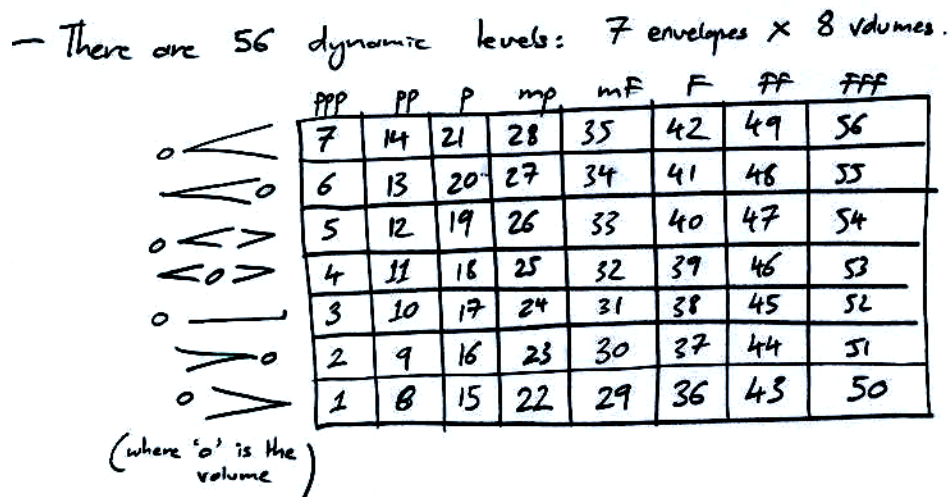 — There are 56 dynamic levels: 7 envelopes × 8 volumes.
ppp pp p mp mF F FF FFF
o < 7 14 21 28 35 42 49 56
< o 6 13 20 27 34 41 48 55
o < > 5 12 19 26 33 40 47 54
< o > 4 11 18 25 32 39 46 53
o — 3 10 17 24 31 38 45 52
> o 2 9 16 23 30 37 44 51
o > 1 8 15 22 29 36 43 50
(where 'o' is the
volume)